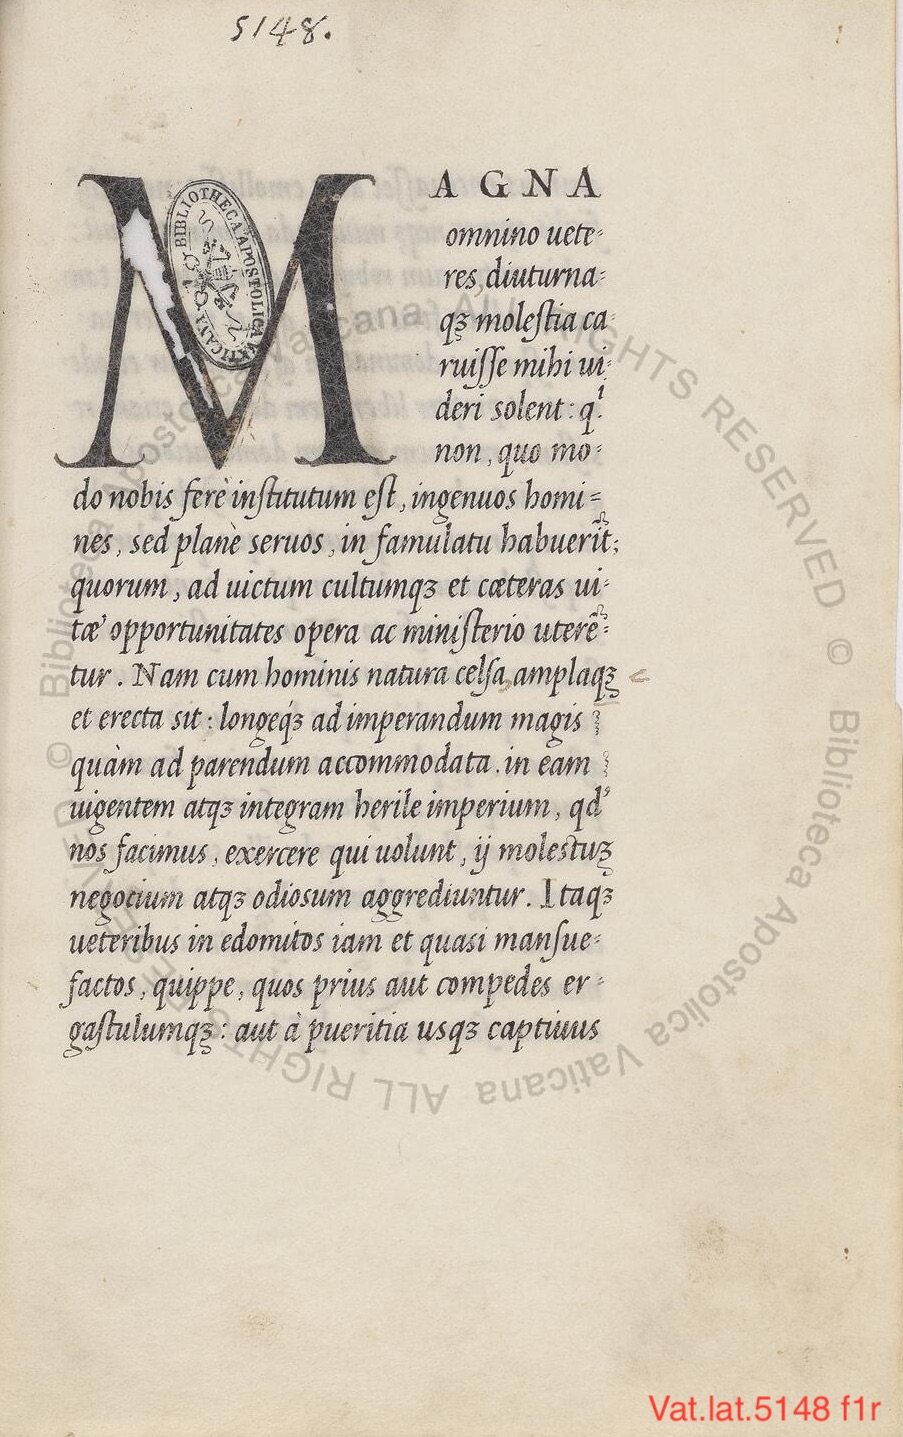 5148.
MAGNA
omnino uete-
res, diuturna-
qꝫ molestia ca-
ruisse mihi ui-
deri solent: qͥ
non, quo mo-
do nobis ferè institutum est, ingenuos homi=
nes, sed planè seruos, in famulatu habuerīt;
quorum, ad uictum cultumqꝫ et cæteras ui-
tæ opportunitates opera ac ministerio uterē-
tur. Nam cum hominis natura celsa, amplaqꝫ
et erecta sit: longeqꝫ́ ad imperandum magis
quàm ad parendum accommodata. in eam
uigentem atqꝫ integram herile imperium, qd'
nos facimus, exercere qui uolunt, ij molestuꝫ
negocium atqꝫ odiosum aggrediuntur. Itaqꝫ
ueteribus in edomitos iam et quasi mansue-
factos, quippe, quos prius aut compedes er-
gastulumqꝫ: aut à pueritia usqꝫ captiuus
BIBLIOTHECA APOSTOLICA VATICANA
© Biblioteca Apostolica Vaticana ALL RIGHTS RESERVED
© Biblioteca Apostolica Vaticana ALL RIGHTS RESERVED
Vat.lat.5148 f1r